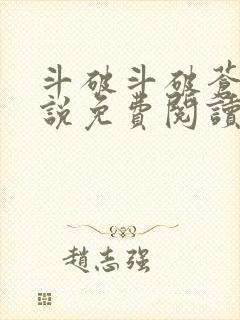 斗破斗破蒼
說免費閱讀
趙志強